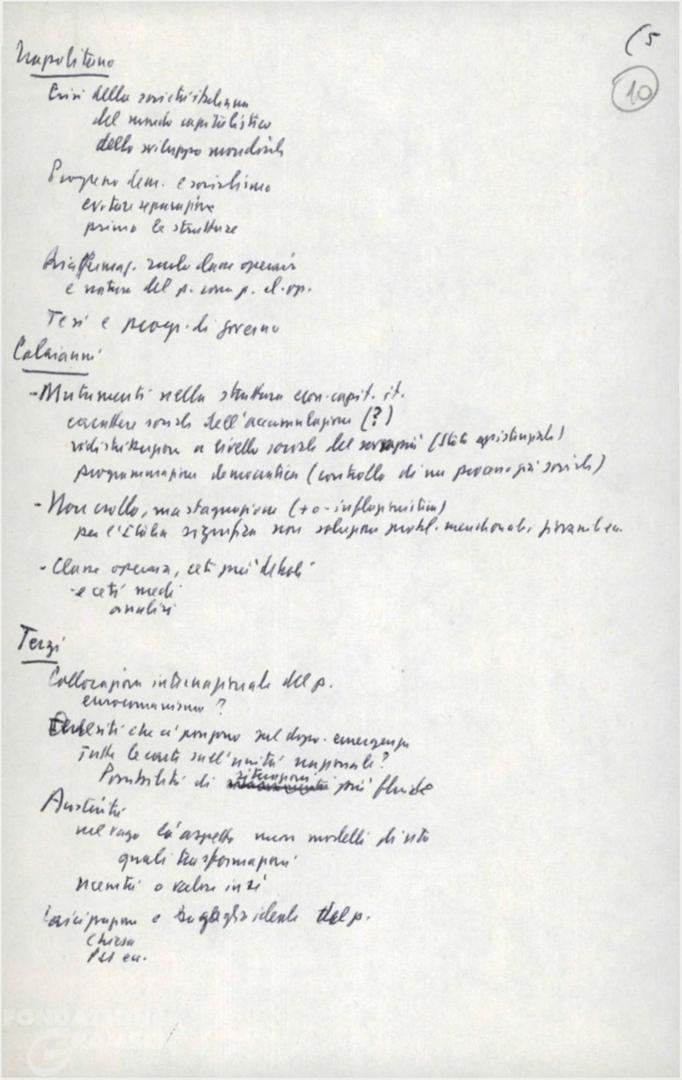 (5
10
Napolitano
Crisi della società italiana
del mondo capitalistico
dello sviluppo mondiale
Progresso dem. e socialismo
evitare separazione
primo le strutture
Riaffermaz. ruolo classe operaia
e natura del p. come p. cl. op.
Tesi e progr. di governo
Colajanni
- Mutamenti nella struttura econ. capit. it.
carattere sociale dell'accumulazione (?)
ridistribuzione a livello sociale del (Stato assistenziale)
programmazione democratica (controllo di un processo già sociale)
- Non crollo, ma stagnazione (+ o - inflazionistica)
per l'Italia significa non soluzione probl. meridionale, giovani ecc.
- Classe operaia, ceti più deboli
- e ceti medi
analisi
Terzi
Collocazione internazionale del p.
eurocomunismo?
Quesiti che ci pongono sul dopo-emergenza
Tutte le carte sull'unità nazionale?
Possibilità di situazioni più fluide
Austerità
nel vago l'aspetto nuovi modelli di vita
quali trasformazioni
necessità o valore in sé
e ideale del p.
Chiesa
PSI ecc.
FONDAZIONE